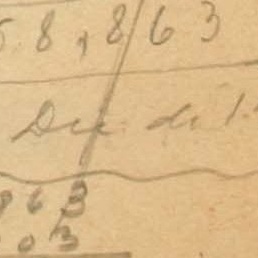 58,863
Due de 1
963
03